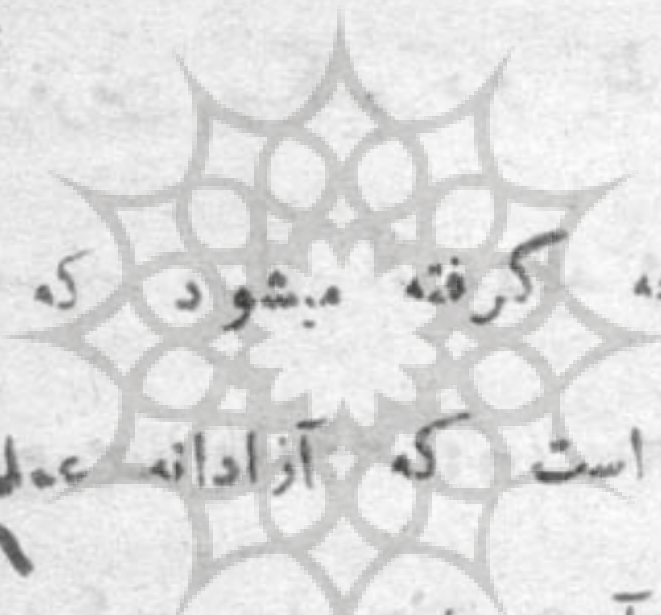 گرفته میشود که
است که آزادانه